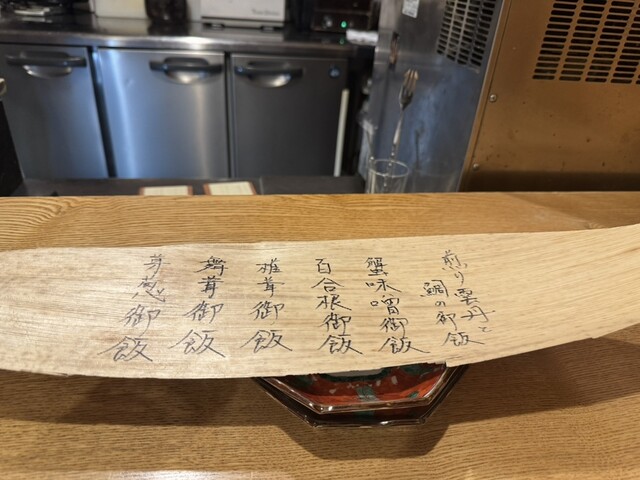 煎り雲丹と
鯛の御飯
蟹味噌御飯
百合根御飯
椎茸御飯
舞茸御飯
芽葱御飯